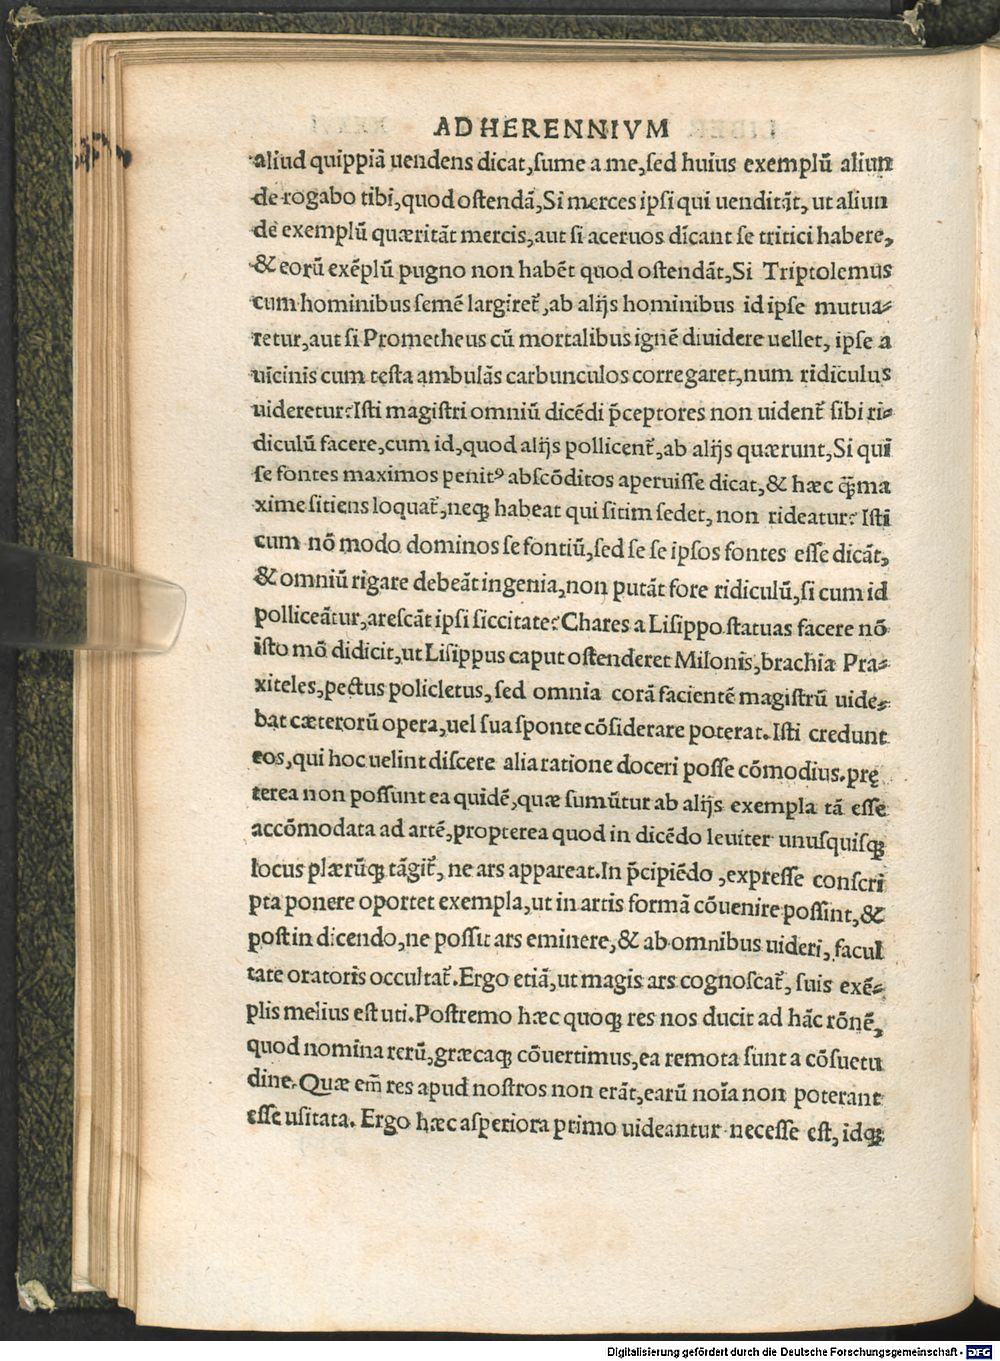 AD HERENNIVM
aliud quippiā uendens dicat, sume a me, sed huius exemplū aliun
de rogabo tibi, quod ostendā, Si merces ipsi qui uenditāt, ut aliun
de exemplū quæritāt mercis, aut si aceruos dicant se tritici habere,
& eorū exēplū pugno non habēt quod ostendāt, Si Triptolemus
cum hominibus semē largiret᷑, ab alijs hominibus id ipse mutua⸗
retur, aut si Prometheus cū mortalibus ignē diuidere uellet, ipse a
uicinis cum testa ambulās carbunculos corregaret, num ridiculus
uideretur? Isti magistri omniū dicēdi p̄ceptores non uident᷑ sibi ri⸗
diculū facere, cum id, quod alijs pollicent᷑, ab alijs quærunt, Si quī
se fontes maximos penitꝰ abscōditos aperuisse dicat, & hæc q̄ma
xime sitiens loquat᷑, neqꝫ habeat qui sitim sedet, non rideatur? Isti
cum nō modo dominos se fontiū, sed se se ipsos fontes esse dicāt,
& omniū rigare debeāt ingenia, non putāt fore ridiculū, si cum id
polliceātur, arescāt ipsi siccitate? Chares a Lisippo statuas facere nō
isto mō didicit, ut Lisippus caput ostenderet Milonis, brachia Pra⸗
xiteles, pectus policletus, sed omnia corā facientē magistrū uide⸗
bat cæterorū opera, uel sua sponte cōsiderare poterat. Isti credunt
eos, qui hoc uelint discere alia ratione doceri posse cōmodius. prę
terea non possunt ea quidē, quæ sumūtur ab alijs exempla tā esse
accōmodata ad artē, propterea quod in dicēdo leuiter unusquisqꝫ
locus plærūqꝫ tāgit᷑, ne ars appareat. In p̄cipiēdo, expresse conscri
pta ponere oportet exempla, ut in artis formā cōuenire possint, &
post in dicendo, ne possit ars eminere, & ab omnibus uideri, facul
tate oratoris occultat᷑. Ergo etiā, ut magis ars cognoscat᷑, suis exē⸗
plis melius est uti. Postremo hæc quoqꝫ res nos ducit ad hāc rōnē,
quod nomina rerū, græcaqꝫ cōuertimus, ea remota sunt a cōsuetu
dine. Quæ em̄ res apud nostros non erāt, earū noīa non poterant
esse usitata. Ergo hæc asperiora primo uideantur necesse est, idqꝫ
Digitalisierung gefördert durch die Deutsche Forschungsgemeinschaft - DFG